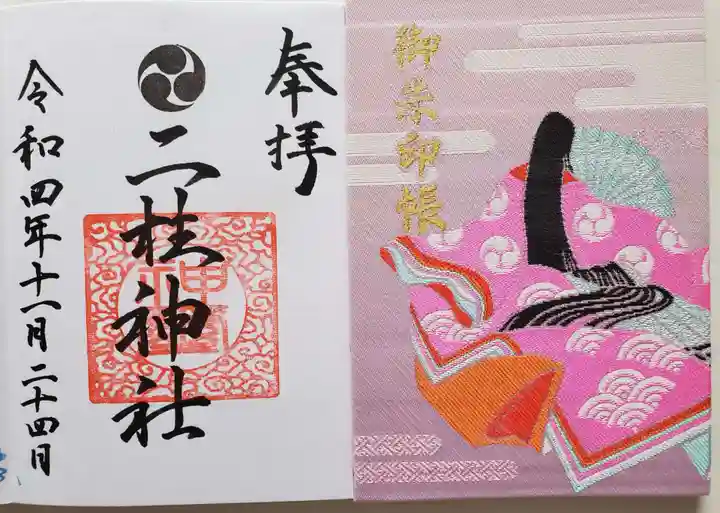 奉拝
二柱神社
令和四年十一月二十四日
御朱印帳